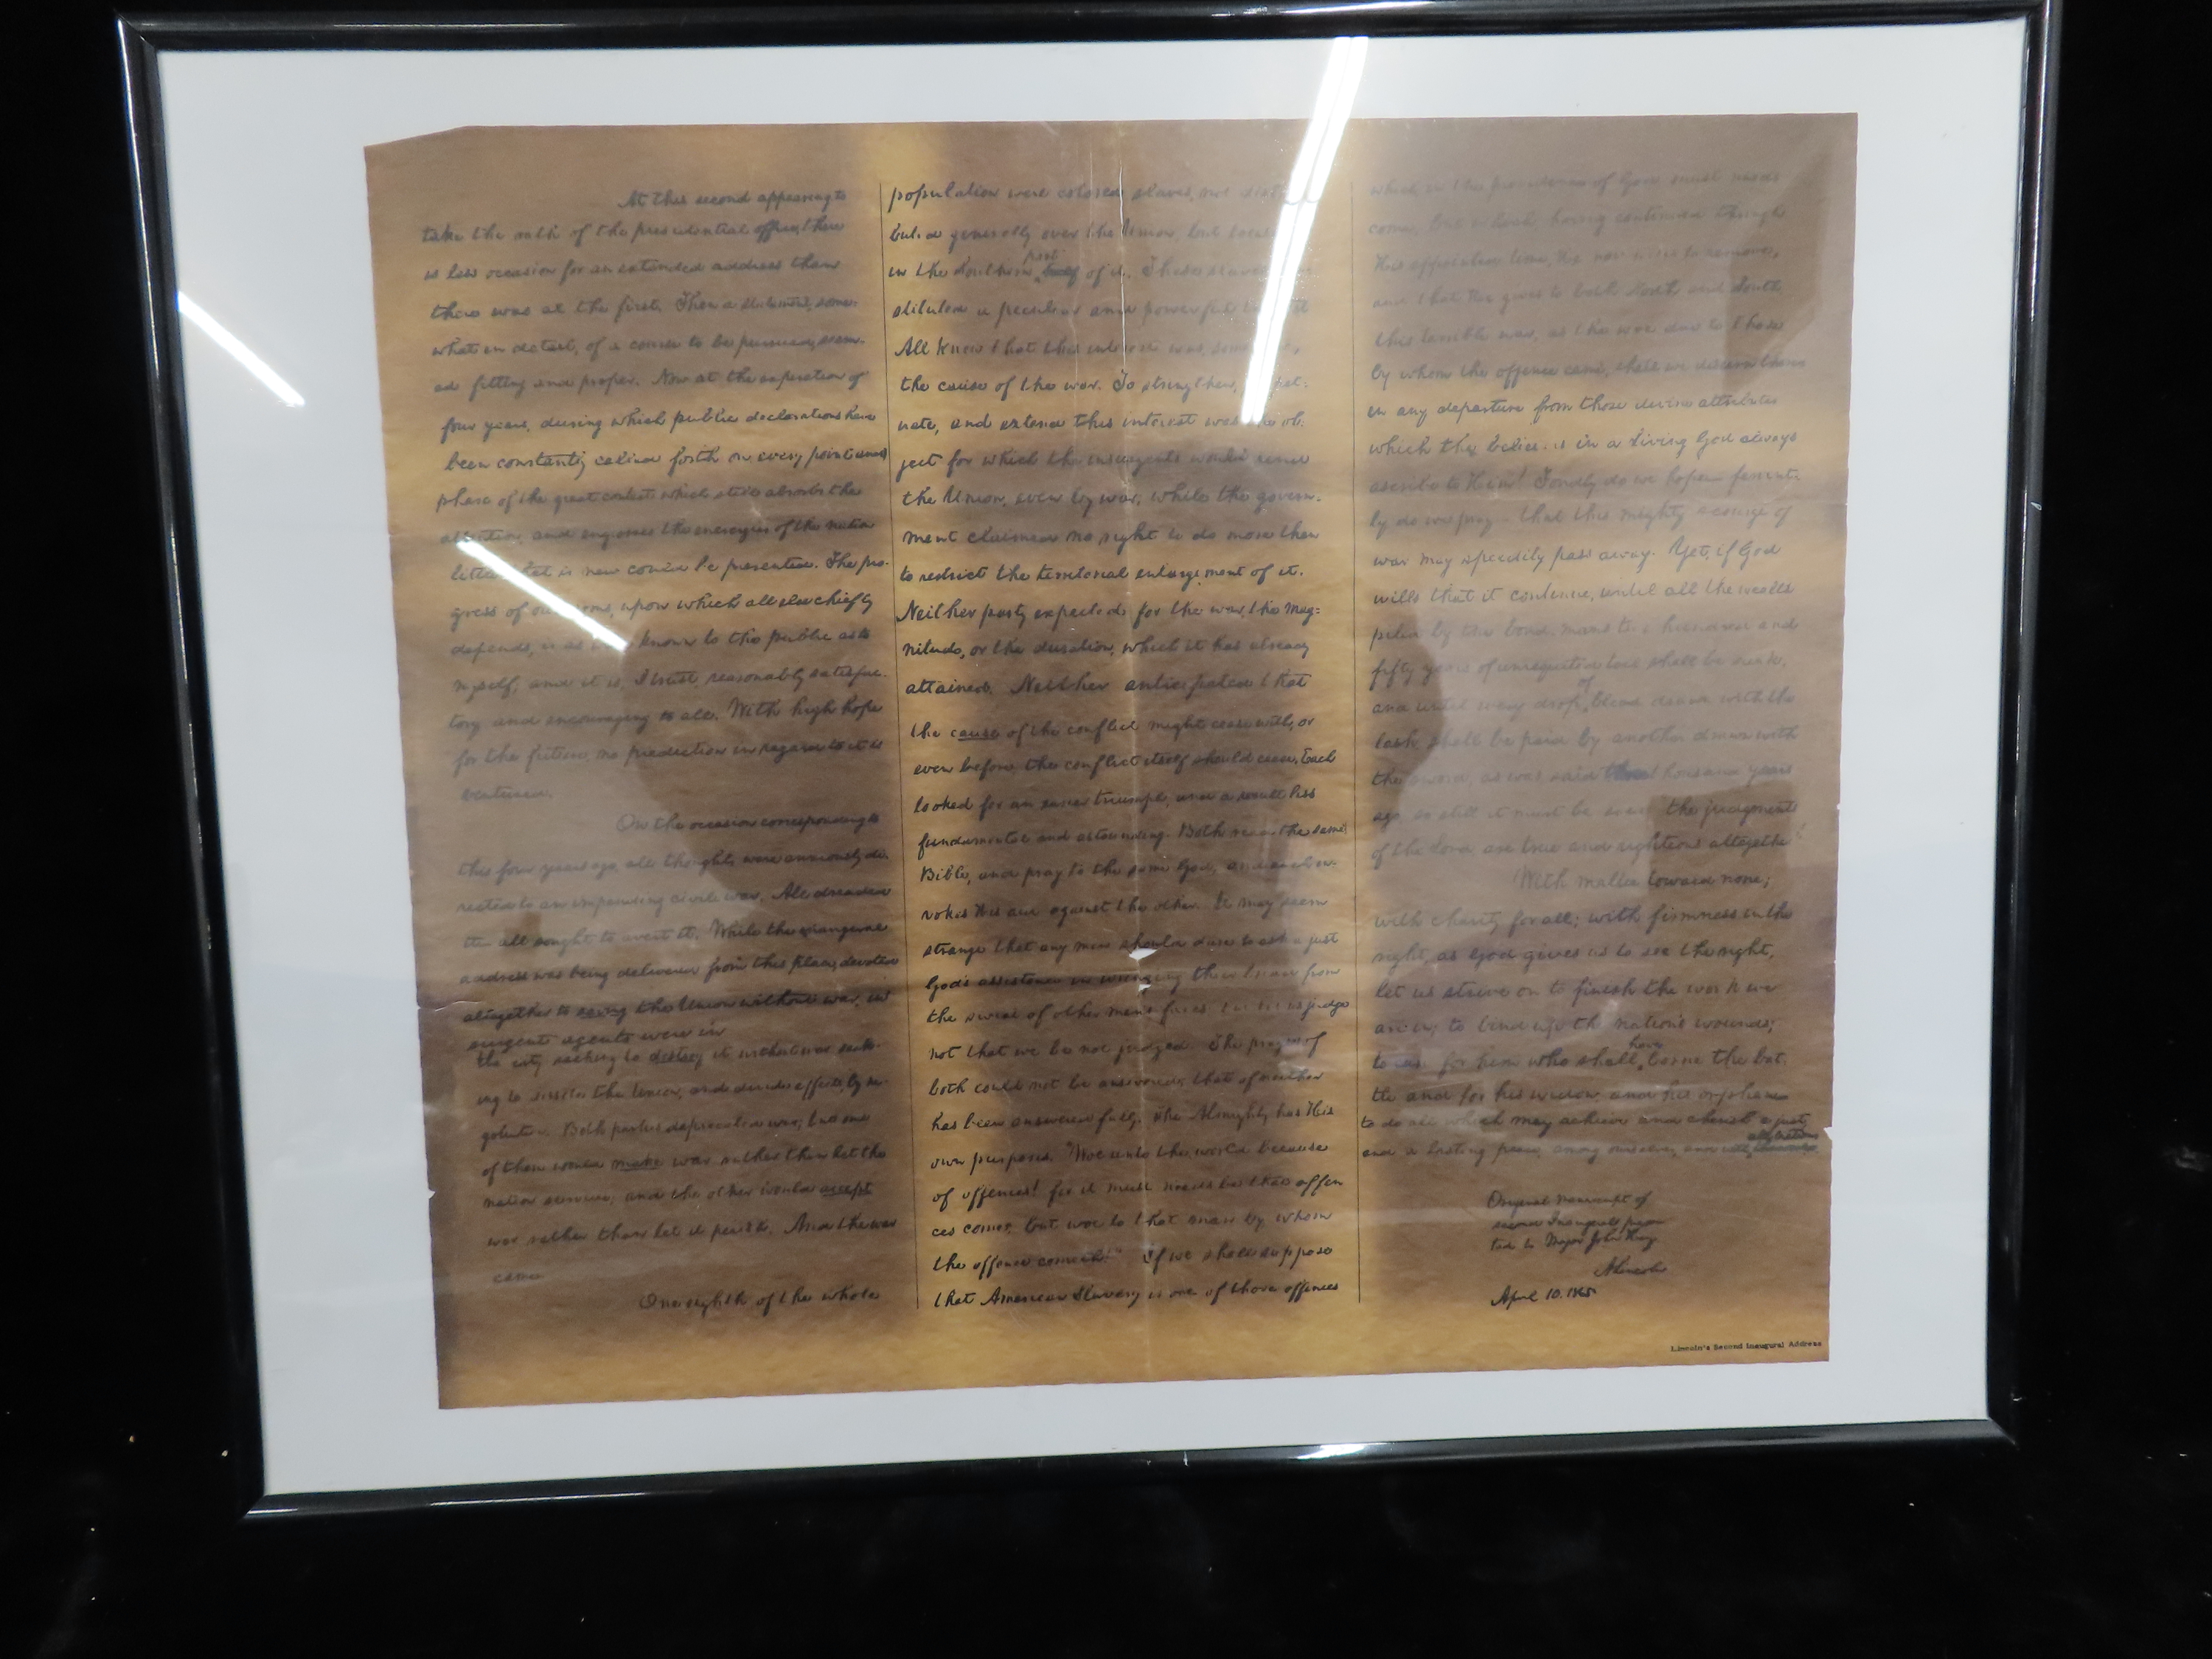 At this second appearing to
take the oath of the presidential office, there
is less occasion for an extended address than
there was at the first. Then a statement, some-
what in detail, of a course to be pursued, seem-
ed fitting and proper. Now at the expiration of
four years, during which public declarations have
been constantly called forth on every point and
phase of the great contest which still absorbs the
attention, and engrosses the energies of the nation
little that is new could be presented. The pro-
gress of our arms, upon which all else chiefly
depends, is as well known to the public as to
myself; and it is, I trust, reasonably satisfac-
tory and encouraging to all. With high hope
for the future, no prediction in regard to it is
ventured.
On the occasion corresponding to
this four years ago, all thoughts were anxiously di-
rected to an impending civil war. All dreaded
it all sought to avert it. While the inaugeral
address was being delivered from this place, devoted
altogether to saving the Union without war, in
surgent agents were in
the city seeking to destroy it without war seek-
ing to dissolve the Union, and divide effects, by ne-
gotiation. Both parties deprecated war; but one
of them would make war rather than let the
nation survive; and the other would accept
war rather than let it perish. And the war
came
One eighth of the whole
population were colored slaves, not distri
buted generally over the Union, but
in the Southern part half of it. These slaves
stituted a peculiar and powerful
All knew that this interest was,
the cause of the war. To strengthen,
uate, and extend this interest was the ob-
ject for which the insurgents would rend
the Union, even by war; while the govern-
ment claimed no right to do more than
to restrict the territorial enlargement of it.
Neither party expected for the war, the mag-
nitude, or the duration, which it has already
attained. Neither anticipated that
the cause of the conflict might cease with, or
even before, the conflict itself should cease. Each
looked for an easier triumph, and a result less
fundamental and astounding. Both read the same
Bible, and pray to the same God; and each in-
vokes His aid against the other. It may seem
strange that any men should dare to ask a just
God's assistance in wringing their bread from
the sweat of other men's faces but let us judge
not that we be not judged. The prayers of
both could not be answered; that of neither
has been answered fully. The Almighty has His
own purposes. "Woe unto the world because
of offences! for it must needs be that offen
ces come; but woe to that man by whom
the offence cometh!" If we shall suppose
that American Slavery is one of those offences
which in the providence of God must needs
come, but which, having continued through
His appointed time, He now wills to remove,
and that He gives to both North and South
this terrible war, as the woe due to those
by whom the offence came, shall we discern therein
in any departure from those divine attributes
which the believers in a Living God always
ascribe to Him! Fondly do we hope— fervent-
ly do we pray— that this mighty scourge of
war may speedily pass away. Yet, if God
wills that it continue, until all the wealth
piled by the bond-man's two hundred and
fifty years of unrequited toil shall be sunk,
and until every drop of blood drawn with the
lash, shall be paid by another drawn with
the sword, as was said three thousand years
ago, so still it must be said "the judgments
of the Lord, are true and righteous altogether"
With malice toward none;
with charity for all; with firmness in the
right, as God gives us to see the right,
let us strive on to finish the work we
are in; to bind up the nation's wounds;
to care for him who shall have borne the bat-
tle and for his widow, and his orphan
to do all which may achieve and cherish a just
and a lasting peace, among ourselves, and with all nations
Original manuscript of
second Inaugural presen
ted to Major John Hay
A Lincoln
April 10. 1865
Lincoln's Second Inaugural Address